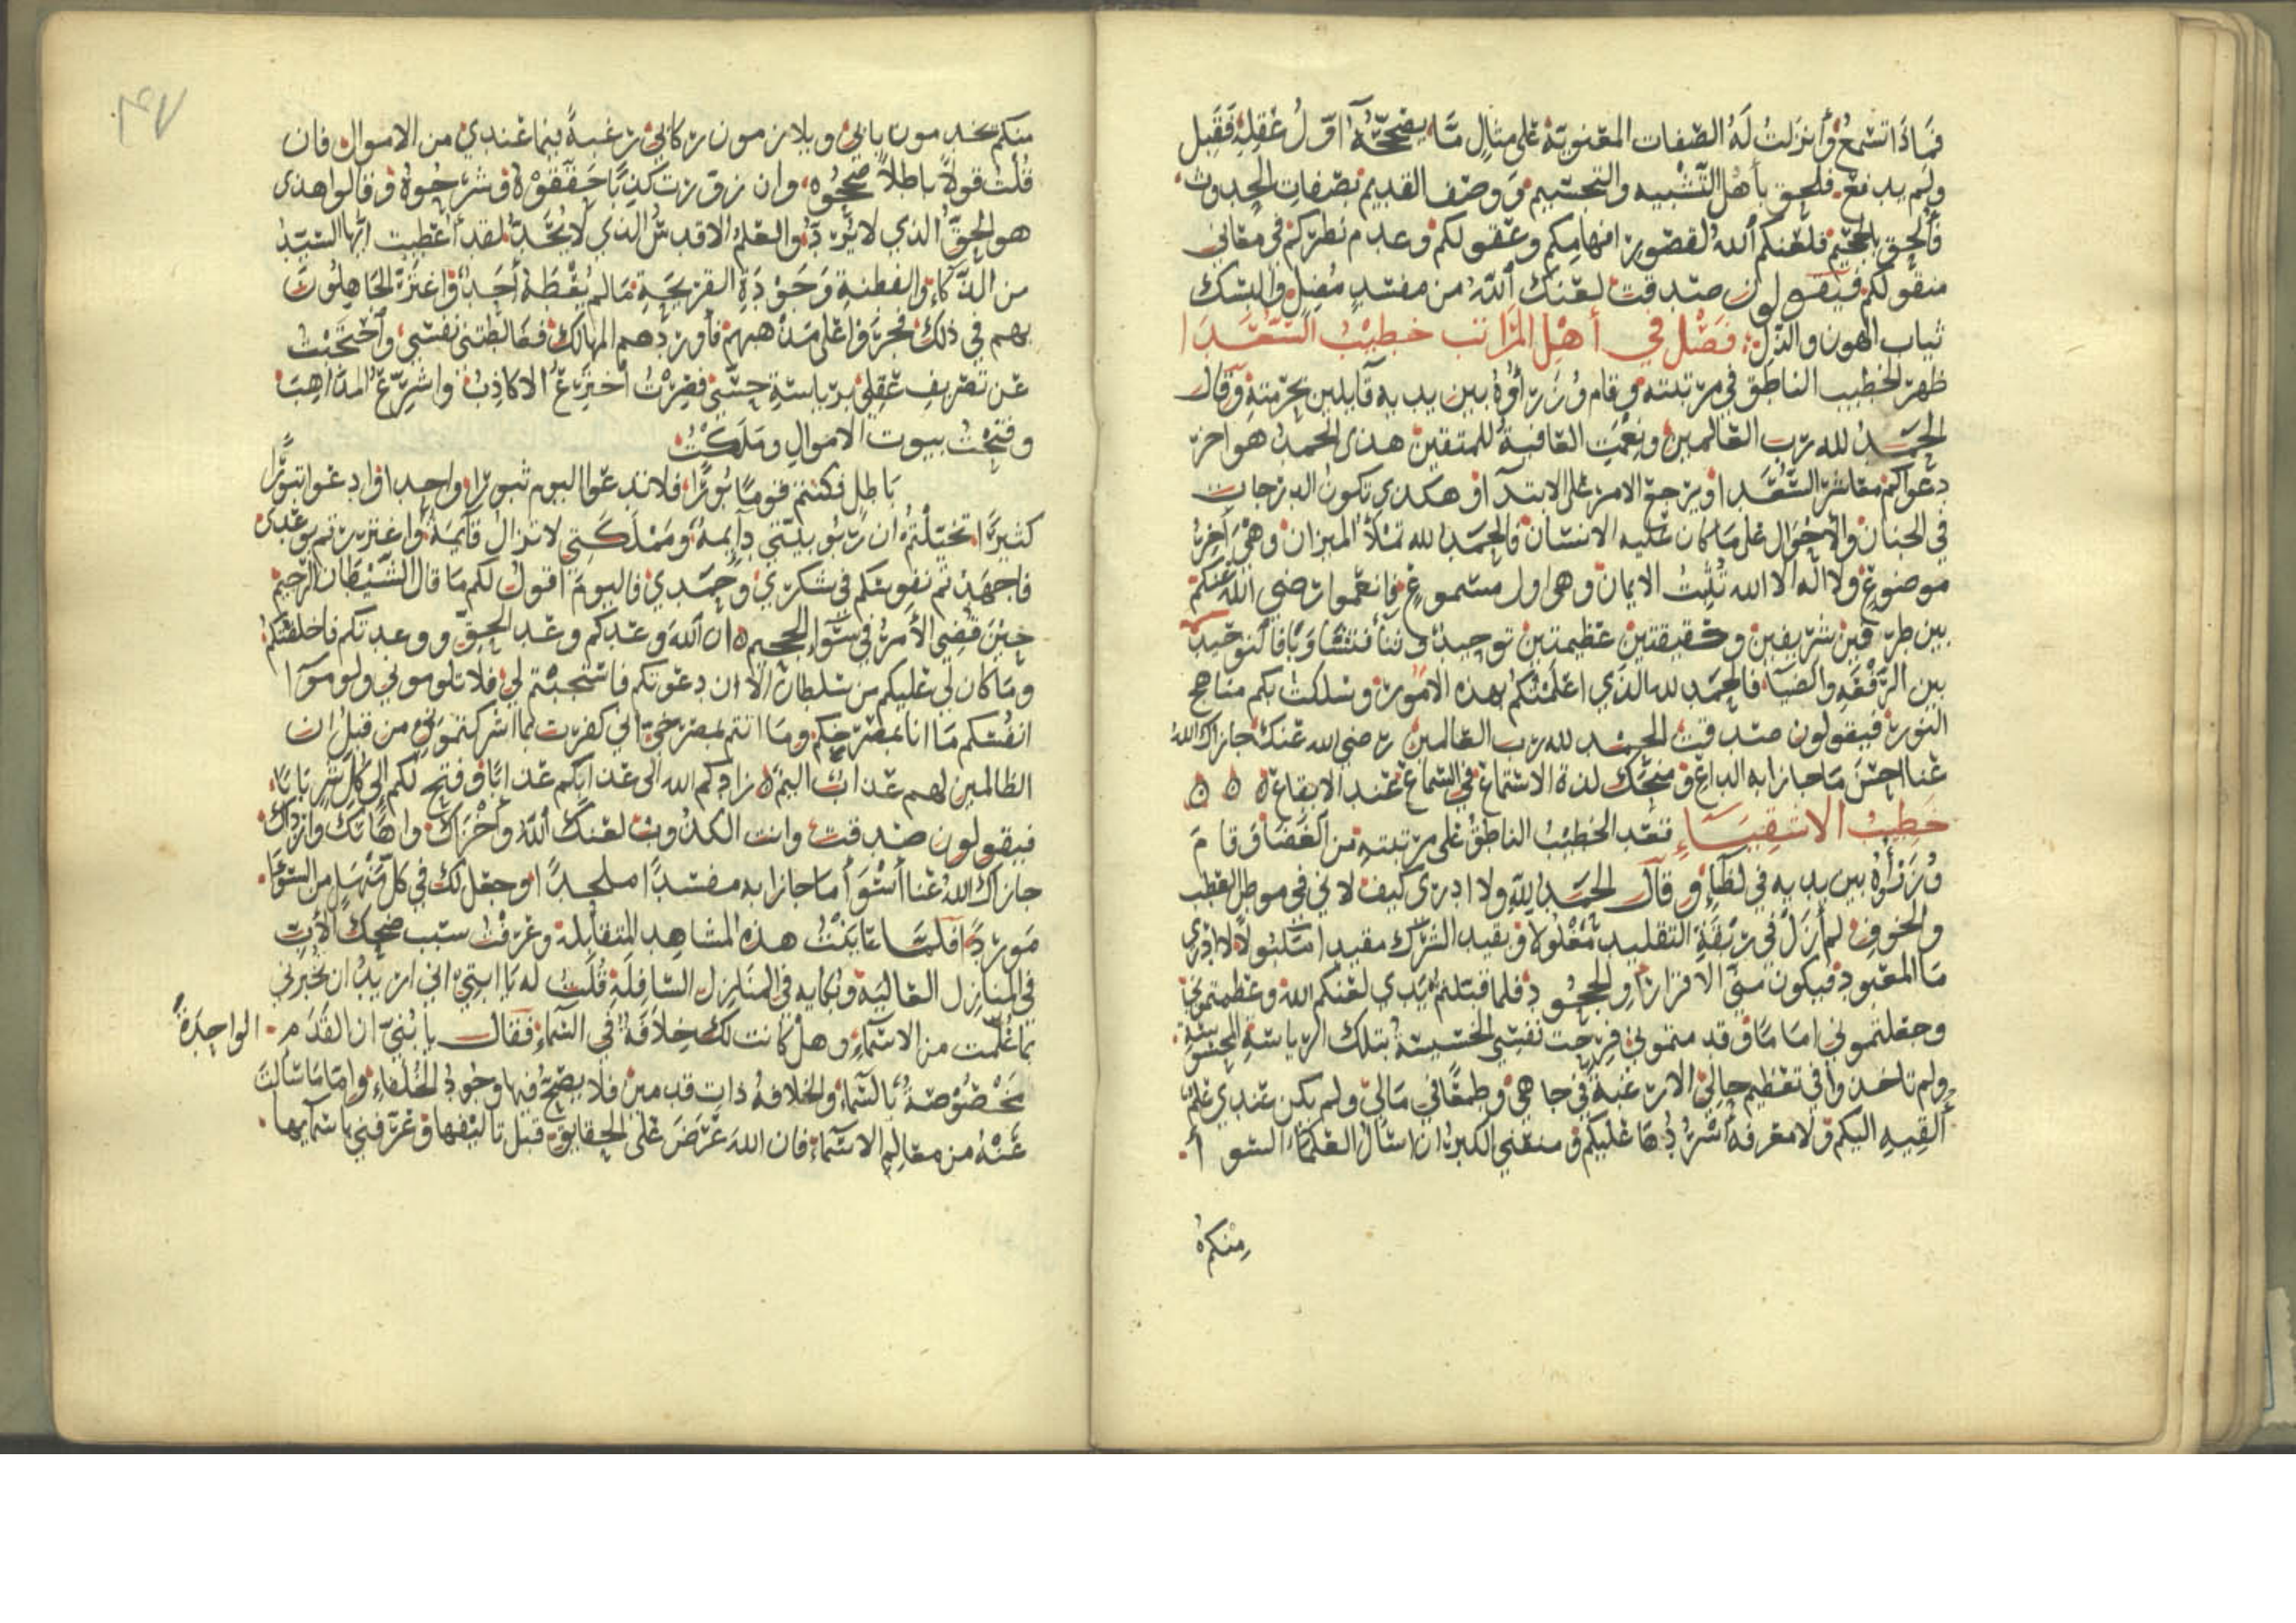 فماذا تسمع وأنزلت له الصفات المعنوية على مثال ما يصححه اول عقله فقبل
ولم يدفع فلحق بأهل التشبيه والتجسيم ووصف القديم بصفات الحدوث
فألحق بالجحيم فلعنكم الله لقصور افهامكم وعقولكم وعدم نظركم في معاني
منقولكم فيقولون صدقت لعنك الله من مفسد مضل والبسك
ثياب الهون والذل فصل في أهل المراتب خطيب السعدا
ظهر الخطيب الناطق في مرتبته وقام وزراؤه بين يديه قايلين بحرمته وقال
الحمد لله رب العالمين ونعمت العاقبة للمتقين هذى الحمد هو اخر
دعواكم معاشر السعدا ويرجع الامر على الابتدا وهكذى تكون الدرجات
في الجنان والأحوال على ما كان عليه الانسان فالحمد لله تملأ الميزان وهي آخر
موضوع ولا اله الا الله تثبت الايمان وهي اول مسموع فانعموا رضي الله عنكم
بين طرفين شريفين وحقيقتين عظيمتين توحيد وثنا فتساويا فالتوحيد
بين الرفعة والضيا فالحمد لله الذي اعلمتكم بهذه الامور وسلكت بكم مناهج
النور فيقولون صدقت الحمد لله رب العالمين رضي الله عنك جازاك الله
عنا احسن ما جازا به الداع ومنحك لذة الاستماع في السماع عند الايقاع ه ه ه
خطيب الاشقياء قعد الخطيب الناطق على مرتبته من الغضا وقام
وزراؤه بين يديه في لظا وقال الحمد لله ولا ادري كيف لاني في موطن القطب
والخوف لم أزل في ربقة التقليد مغلولا وبقيد الشرك مقيدا مسلولا لا ادري
ما المعبود فيكون مني الاقرار او الجحود فلما قبلتم يدي لعنكم الله وعظمتموني
وجعلتموني اماما وقدمتموني فرحت نفسي الخسيسة بتلك الرياسة المحسوسة
ولم تاخذوا في تعظيم حالي الا رغبة في جاهي وطمعا في مالي ولم يكن عندي علم
ألقيه اليكم ولا معرفة أسردها عليكم ومنعني الكبر ان اسأل العلماء السوأ
منكم
منكم يخدمون بابي ويلازمون ركابي رغبة فيما عندي من الاموال فان
قلت قولا باطلا صححوه وان زورت كذبا حققوه وشرحوه وقالوا هذى
هو الحق الذي لا يرد والعلم الاقدس الذي لا يحد لقد أعطيت ايها السيد
من الذكاء والفطنة وجودة القريحة ما لم يعطه أحد واغترة الجاهلون
بهم في ذلك فجروا على مذاهبهم فأوردهم المهالك فغالطتني نفسي وأحتجبت
عن تصريف عقلي برياسة حسي فصرت أخترع الاكاذب واشرع المذاهب
وفتحت بيوت الاموال وملكت
باطل فكنتم قوما بورا فلا تدعوا اليوم ثبورا واحدا وادعوا ثبورا
كثيرا تخيلتم ان ربوبيتي دآيمة ومملكتي لا تزال قآيمة واغتررتم بوعدى
فاجهدتم نفوسكم في شكري وحمدي فاليوم اقول لكم ما قال الشيطان الرجيم
حين قضي الأمر في سواء الجحيم ه ان الله وعدكم وعد الحق ووعدتكم فاخلفتكم
وما كان لي عليكم من سلطان الا ان دعوتكم فاستجبتم لي فلا تلوموني ولوموآ ا
انفسكم ما انا بمصرخكم وما انتم بمصرخي اني كفرت بما اشركتموني من قبل ان
الظالمين لهم عذاب اليم ه زادكم الله الى عذابكم عذابا وفتح لكم الى كل شر بابا
فيقولون صدقت وانت الكذوب لعنك الله وأخزاك واهانك وازداك
جازاك الله عنا أسوأ ما جازا به مفسدا ملحدا وجعل لك في كل منهل من السوء
موردا فلما عاينت هذه المشاهد المتقابلة وعرفت سبب ضحك الأب
في المنازل العالية وبكايه في المنازل السافلة قلت له يا ابتي اني اريد ان تخبرني
بما علمت من الاسماء وهل كانت لك خلافة في السماء فقال يا بني ان القدم الواحدة
مخصوصة بالسماء والخلافة ذات قدمين فلا يصح فيها وجود الخلفاء واما ما سالت
عنه من معالم الاسماء فان الله عرض على الحقايق قبل تاليفها وعرفني باسمايها